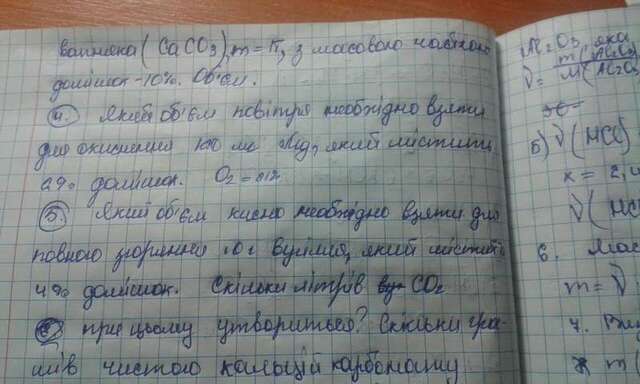 вапняка (CaCO3), m = 1т, з масовою часткою
домішок - 10%. Об'єм.
4. Який об'єм повітря необхідно взяти
для окиснення 100 мл який містить
домішок. O2 =
5. Який об'єм кисню необхідно взяти для
повного згоряння вугілля, який містить
4% домішок. Скільки літрів CO2
при цьому утвориться? Скільки гра-
мів чистого кальцій карбонату
Al2O3, яка
ν = m(Al2O3)
M(Al2O3
б) ν(HCl)
x = 2,
ν(HC
6. Мас
m = ν
7.
m